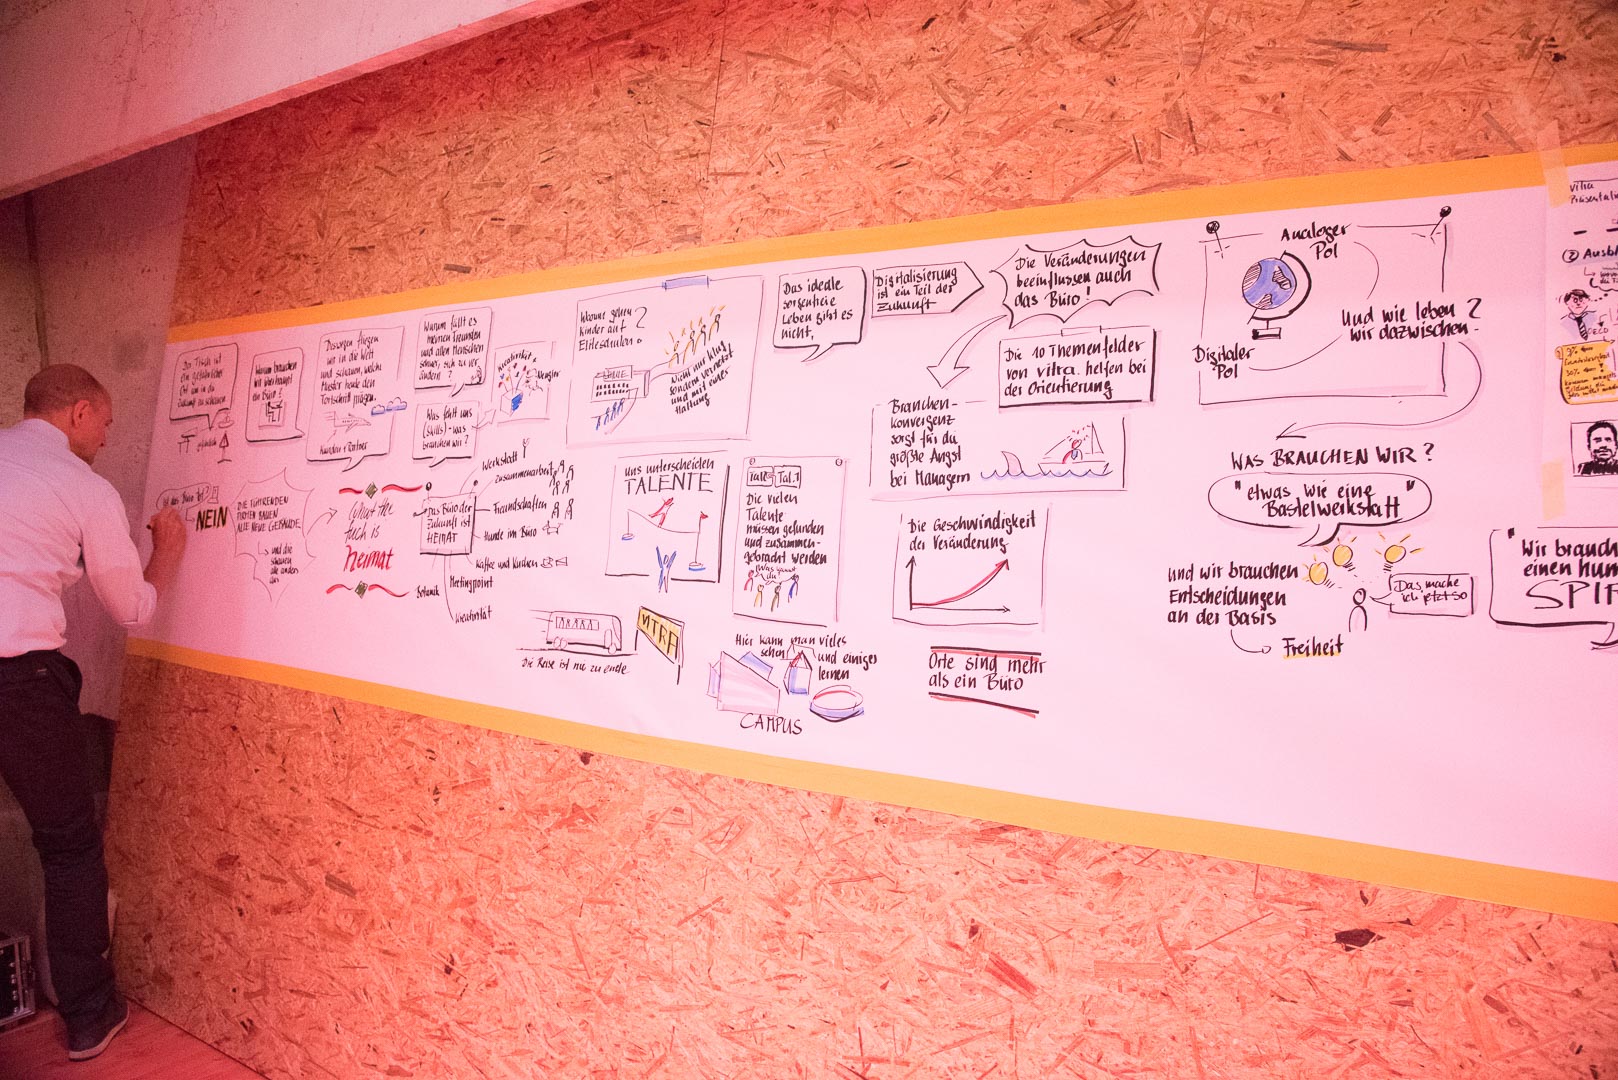 Der Tisch ist
ein gefährlicher
Ort um in die
Zukunft zu schauen
gefährlich
Warum brauchen
wir überhaupt
ein Büro?
Deswegen fliegen
wir in die Welt
und schauen, welche
Muster heute den
Fortschritt prägen.
Kunden + Partner
Warum fällt es
meinen Freunden
und allen Menschen
schwer, sich zu ver-
ändern?
Was fehlt uns
(Skills) - was
brauchen wir?
Kreativität &
Neugier
Warum gehen
Kinder auf
Eliteschulen?
Nicht nur klug
sondern vernetzt
und mit einer
Haltung
Das ideale
sorgenfreie
Leben gibt es
nicht.
Digitalisierung
ist ein Teil der
Zukunft
Die Veränderungen
beeinflussen auch
das Büro!
Die 10 Themenfelder
von vitra. helfen bei
der Orientierung
Branchen-
konvergenz
sorgt für die
größte Angst
bei Managern
Analoger
Pol
Digitaler
Pol
Und wie leben
wir dazwischen?
Ist das Büro tot?
NEIN
DIE FÜHRENDEN
FIRMEN BAUEN
ALLE NEUE GEBÄUDE
und die
schauen
alle anders
aus
heimat
Das Büro der
Zukunft ist
HEIMAT
Werkstatt
zusammenarbeit
Freundschaften
Hunde im Büro
Kaffee und Kuchen
Meetingpoint
Botanik
Kreativität
Uns unterscheiden
TALENTE
Die vielen
Talente
müssen gefunden
und zusammen-
gebracht werden
Was kannst
du?
Die Geschwindigkeit
der Veränderung
Die Reise ist nie zu ende
VITRA
Hier kann man vieles
sehen und einiges
lernen
CAMPUS
Orte sind mehr
als ein Büro
WAS BRAUCHEN WIR?
"etwas wie eine
Bastelwerkstatt"
und wir brauchen
Entscheidungen
an der Basis
Freiheit
Das mache
ich jetzt so
"Wir brauch
einen hum
SPIR
vitra
Präsentati
② Ausbl